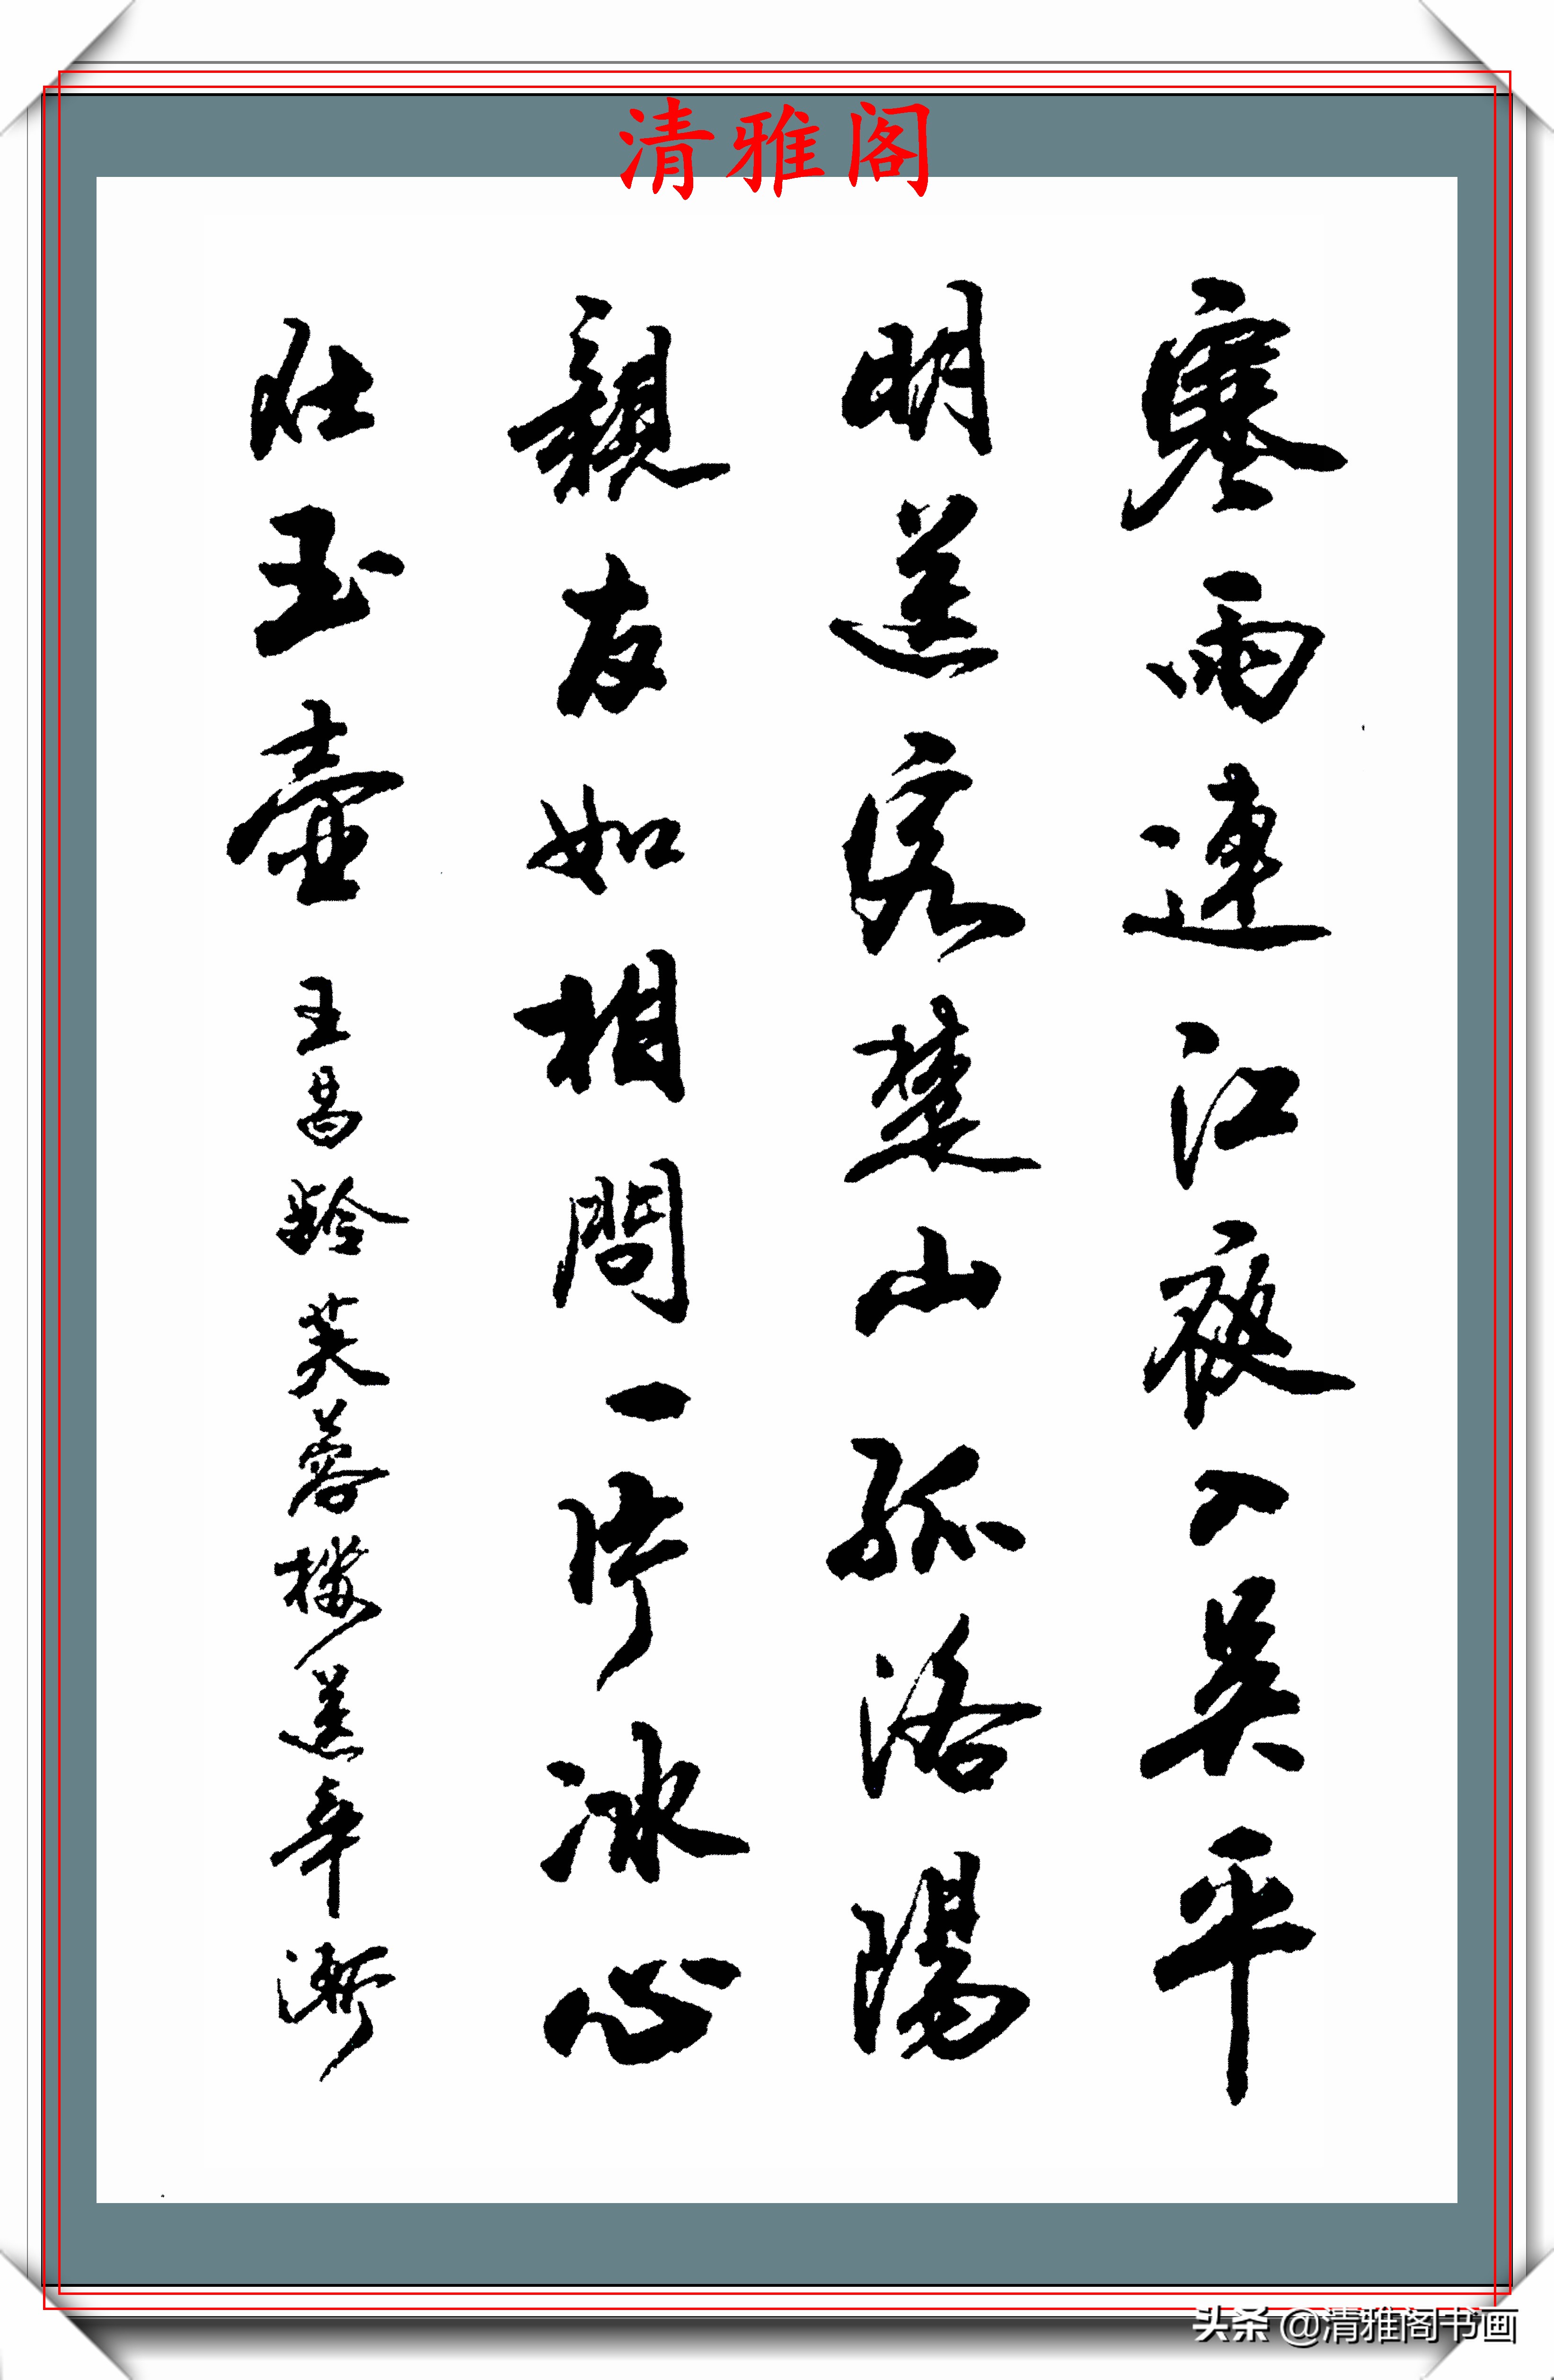 清雅阁
寒雨連江夜入吴平
明送客楚山孤洛陽
親友如相問一片冰心
在玉壺 王昌齡 芙蓉樓送辛漸
头条 @清雅阁书画